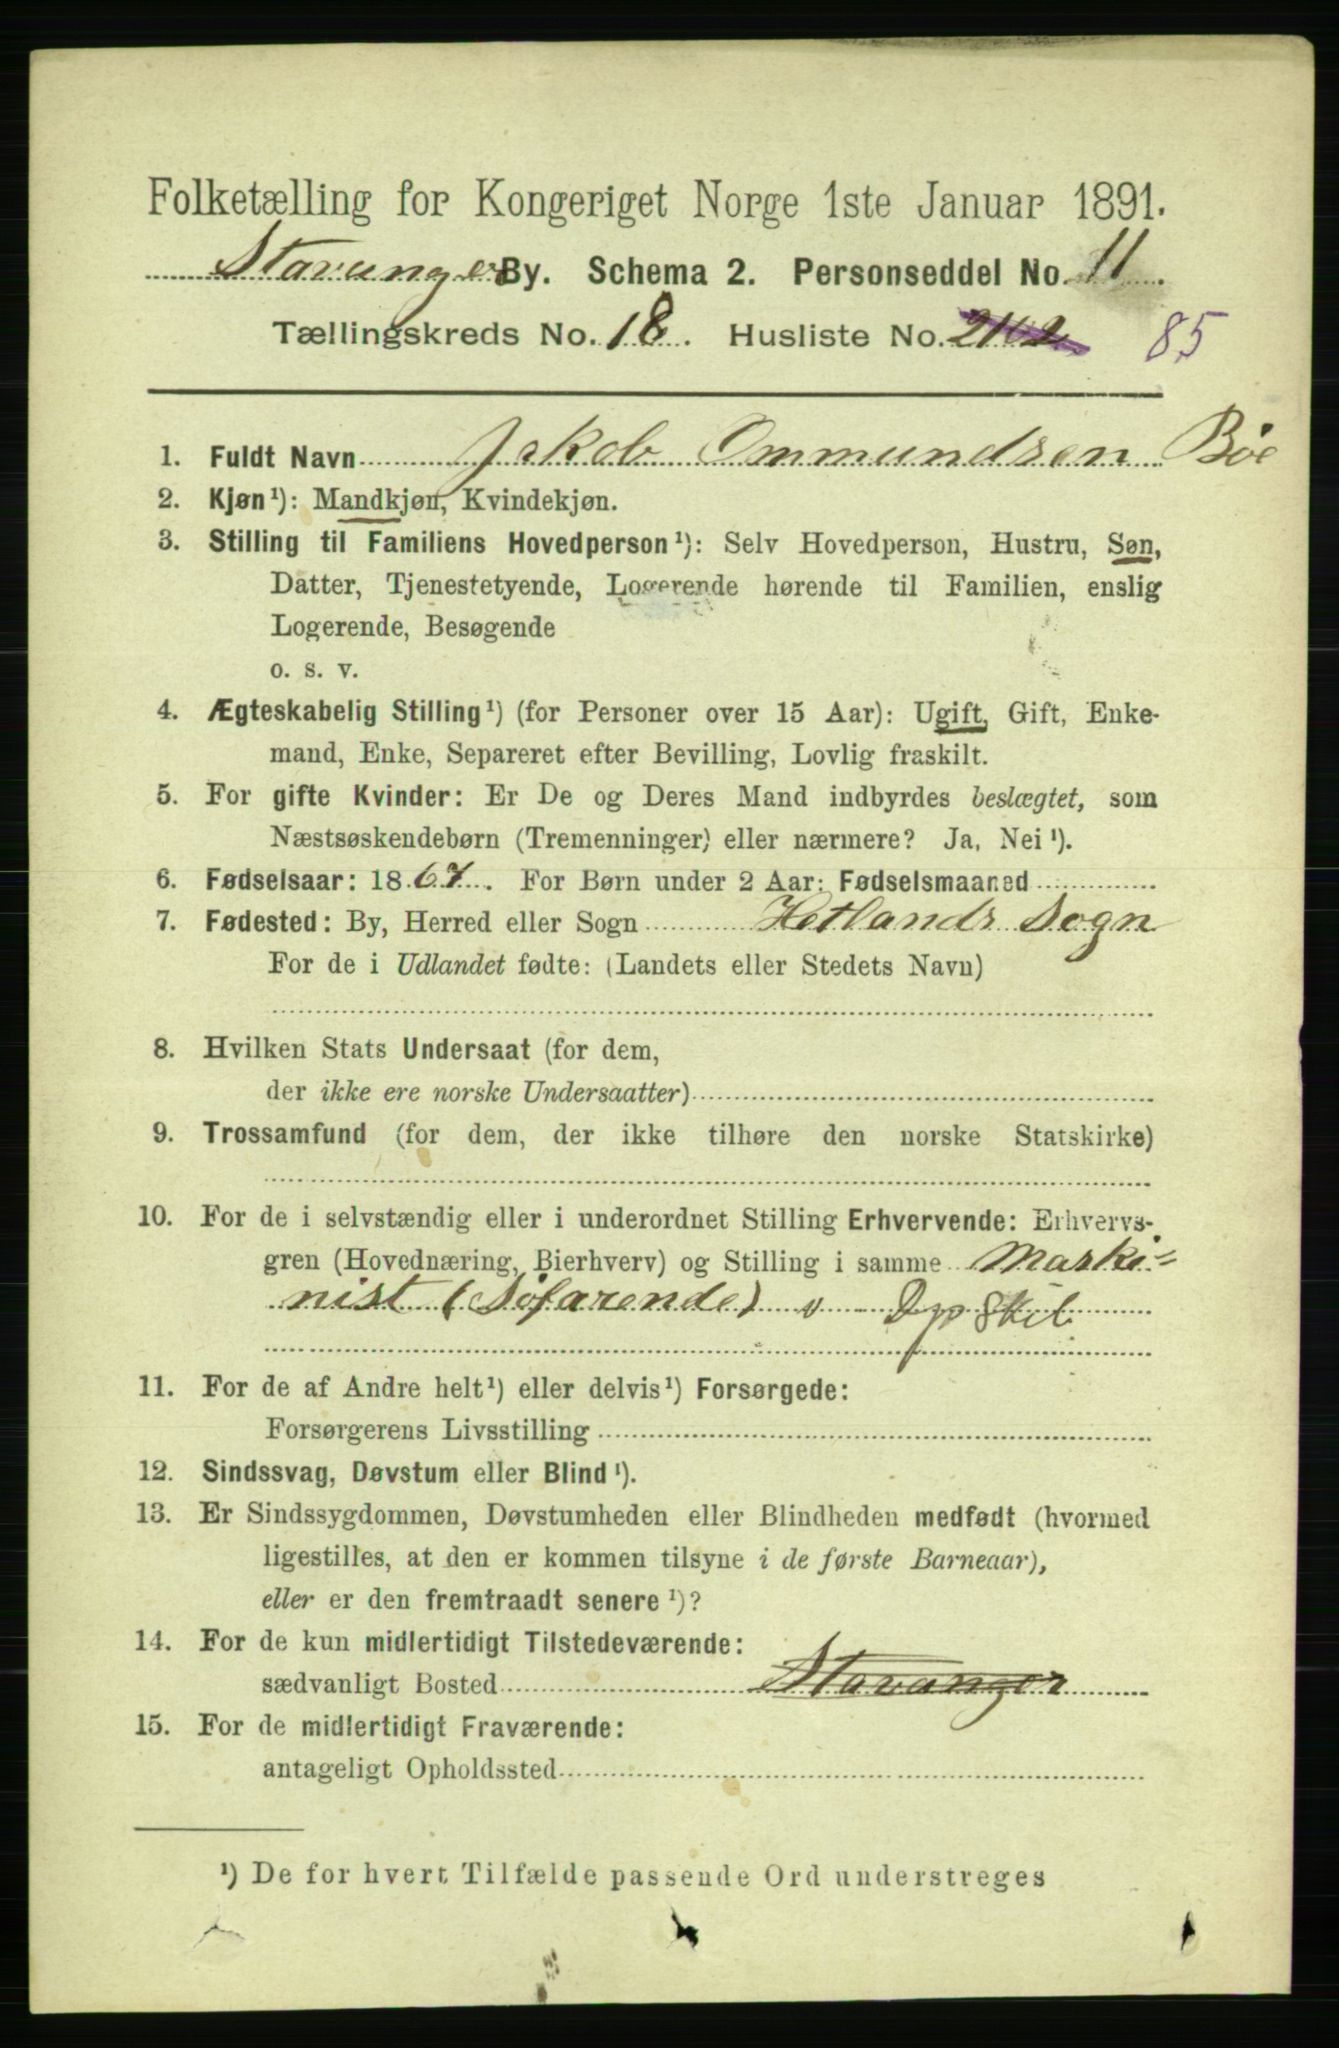 Folketælling for Kongeriget Norge 1ste Januar 1891.
Stavanger By. Schema 2. Personseddel No. 11.
Tællingskreds No. 18. Husliste No. 2102 85
1. Fuldt Navn Jakob Ommundsen Bøe
2. Kjøn¹): Mandkjøn, Kvindekjøn.
3. Stilling til Familiens Hovedperson¹): Selv Hovedperson, Hustru, Søn,
Datter, Tjenestetyende, Logerende hørende til Familien, enslig
Logerende, Besøgende
o. s. v.
4. Ægteskabelig Stilling¹) (for Personer over 15 Aar): Ugift, Gift, Enke-
mand, Enke, Separeret efter Bevilling, Lovlig fraskilt.
5. For gifte Kvinder: Er De og Deres Mand indbyrdes beslægtet, som
Næstsøskendebørn (Tremenninger) eller nærmere? Ja, Nei¹).
6. Fødselsaar: 1867. For Børn under 2 Aar: Fødselsmaaned
7. Fødested: By, Herred eller Sogn Hetlands Sogn
For de i Udlandet fødte: (Landets eller Stedets Navn)
8. Hvilken Stats Undersaat (for dem,
der ikke ere norske Undersaatter)
9. Trossamfund (for dem, der ikke tilhøre den norske Statskirke)
10. For de i selvstændig eller i underordnet Stilling Erhvervende: Erhvervs-
gren (Hovednæring, Bierhverv) og Stilling i samme Maski=
nist (Søfarende) Dpskib
11. For de af Andre helt¹) eller delvis¹) Forsørgede:
Forsørgerens Livsstilling
12. Sindssvag, Døvstum eller Blind¹).
13. Er Sindssygdommen, Døvstumheden eller Blindheden medfødt (hvormed
ligestilles, at den er kommen tilsyne i de første Barneaar),
eller er den fremtraadt senere¹)?
14. For de kun midlertidigt Tilstedeværende:
sædvanligt Bosted Stavanger
15. For de midlertidigt Fraværende:
antageligt Opholdssted
¹) De for hvert Tilfælde passende Ord understreges